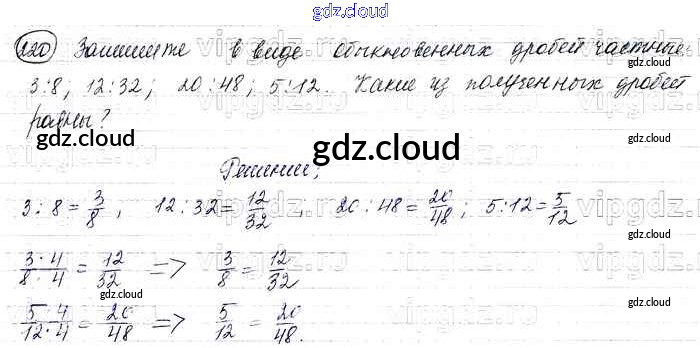 gdz.cloud
220 Запишите в виде обыкновенных дробей частные:
3:8, 12:32; 20:48; 5:12. Какие из полученных дробей
равны?
gdz.cloud gdz.cloud gdz.cloud
Решение;
3:8 = 3/8, 12:32 = 12/32, 20:48 = 20/48; 5:12 = 5/12
gdz.cloud
3·4/8·4 = 12/32 => 3/8 = 12/32
gdz.cloud gdz.cloud
5·4/12·4 = 20/48 => 5/12 = 20/48.